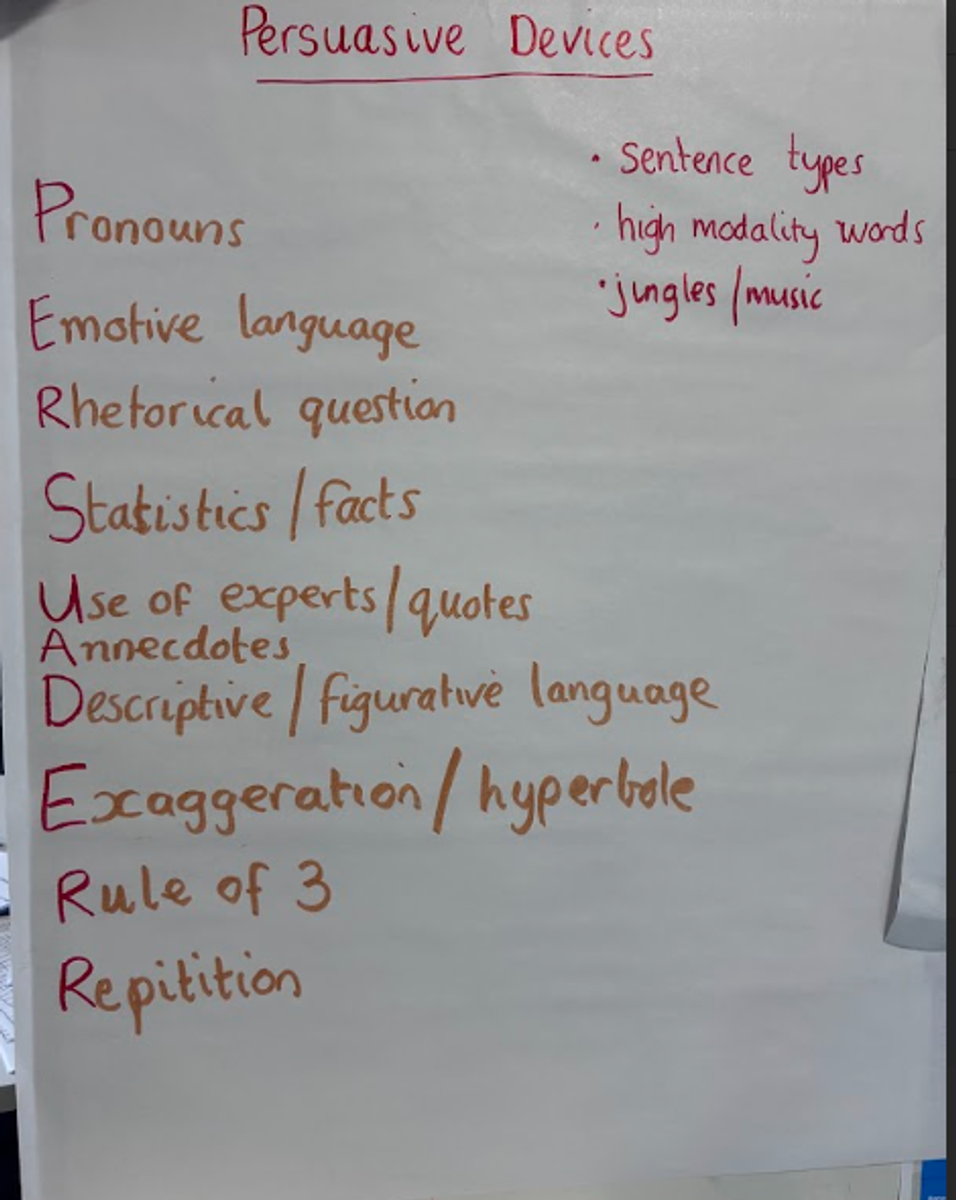 Persuasive Devices
• Sentence types
• high modality words
• jungles/music
Pronouns
Emotive language
Rhetorical question
Statistics/facts
Use of experts/quotes
Annecdotes
Descriptive/figurative language
Exaggeration/hyperbole
Rule of 3
Repitition